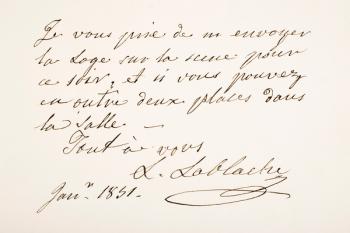 Je vous prie de m envoyer
la Loge sur la scene pour
ce soir, et si vous pouvez
en outre deux places dans
la Salle. —
Tout à vous
L. Lablache
Janr. 1851.